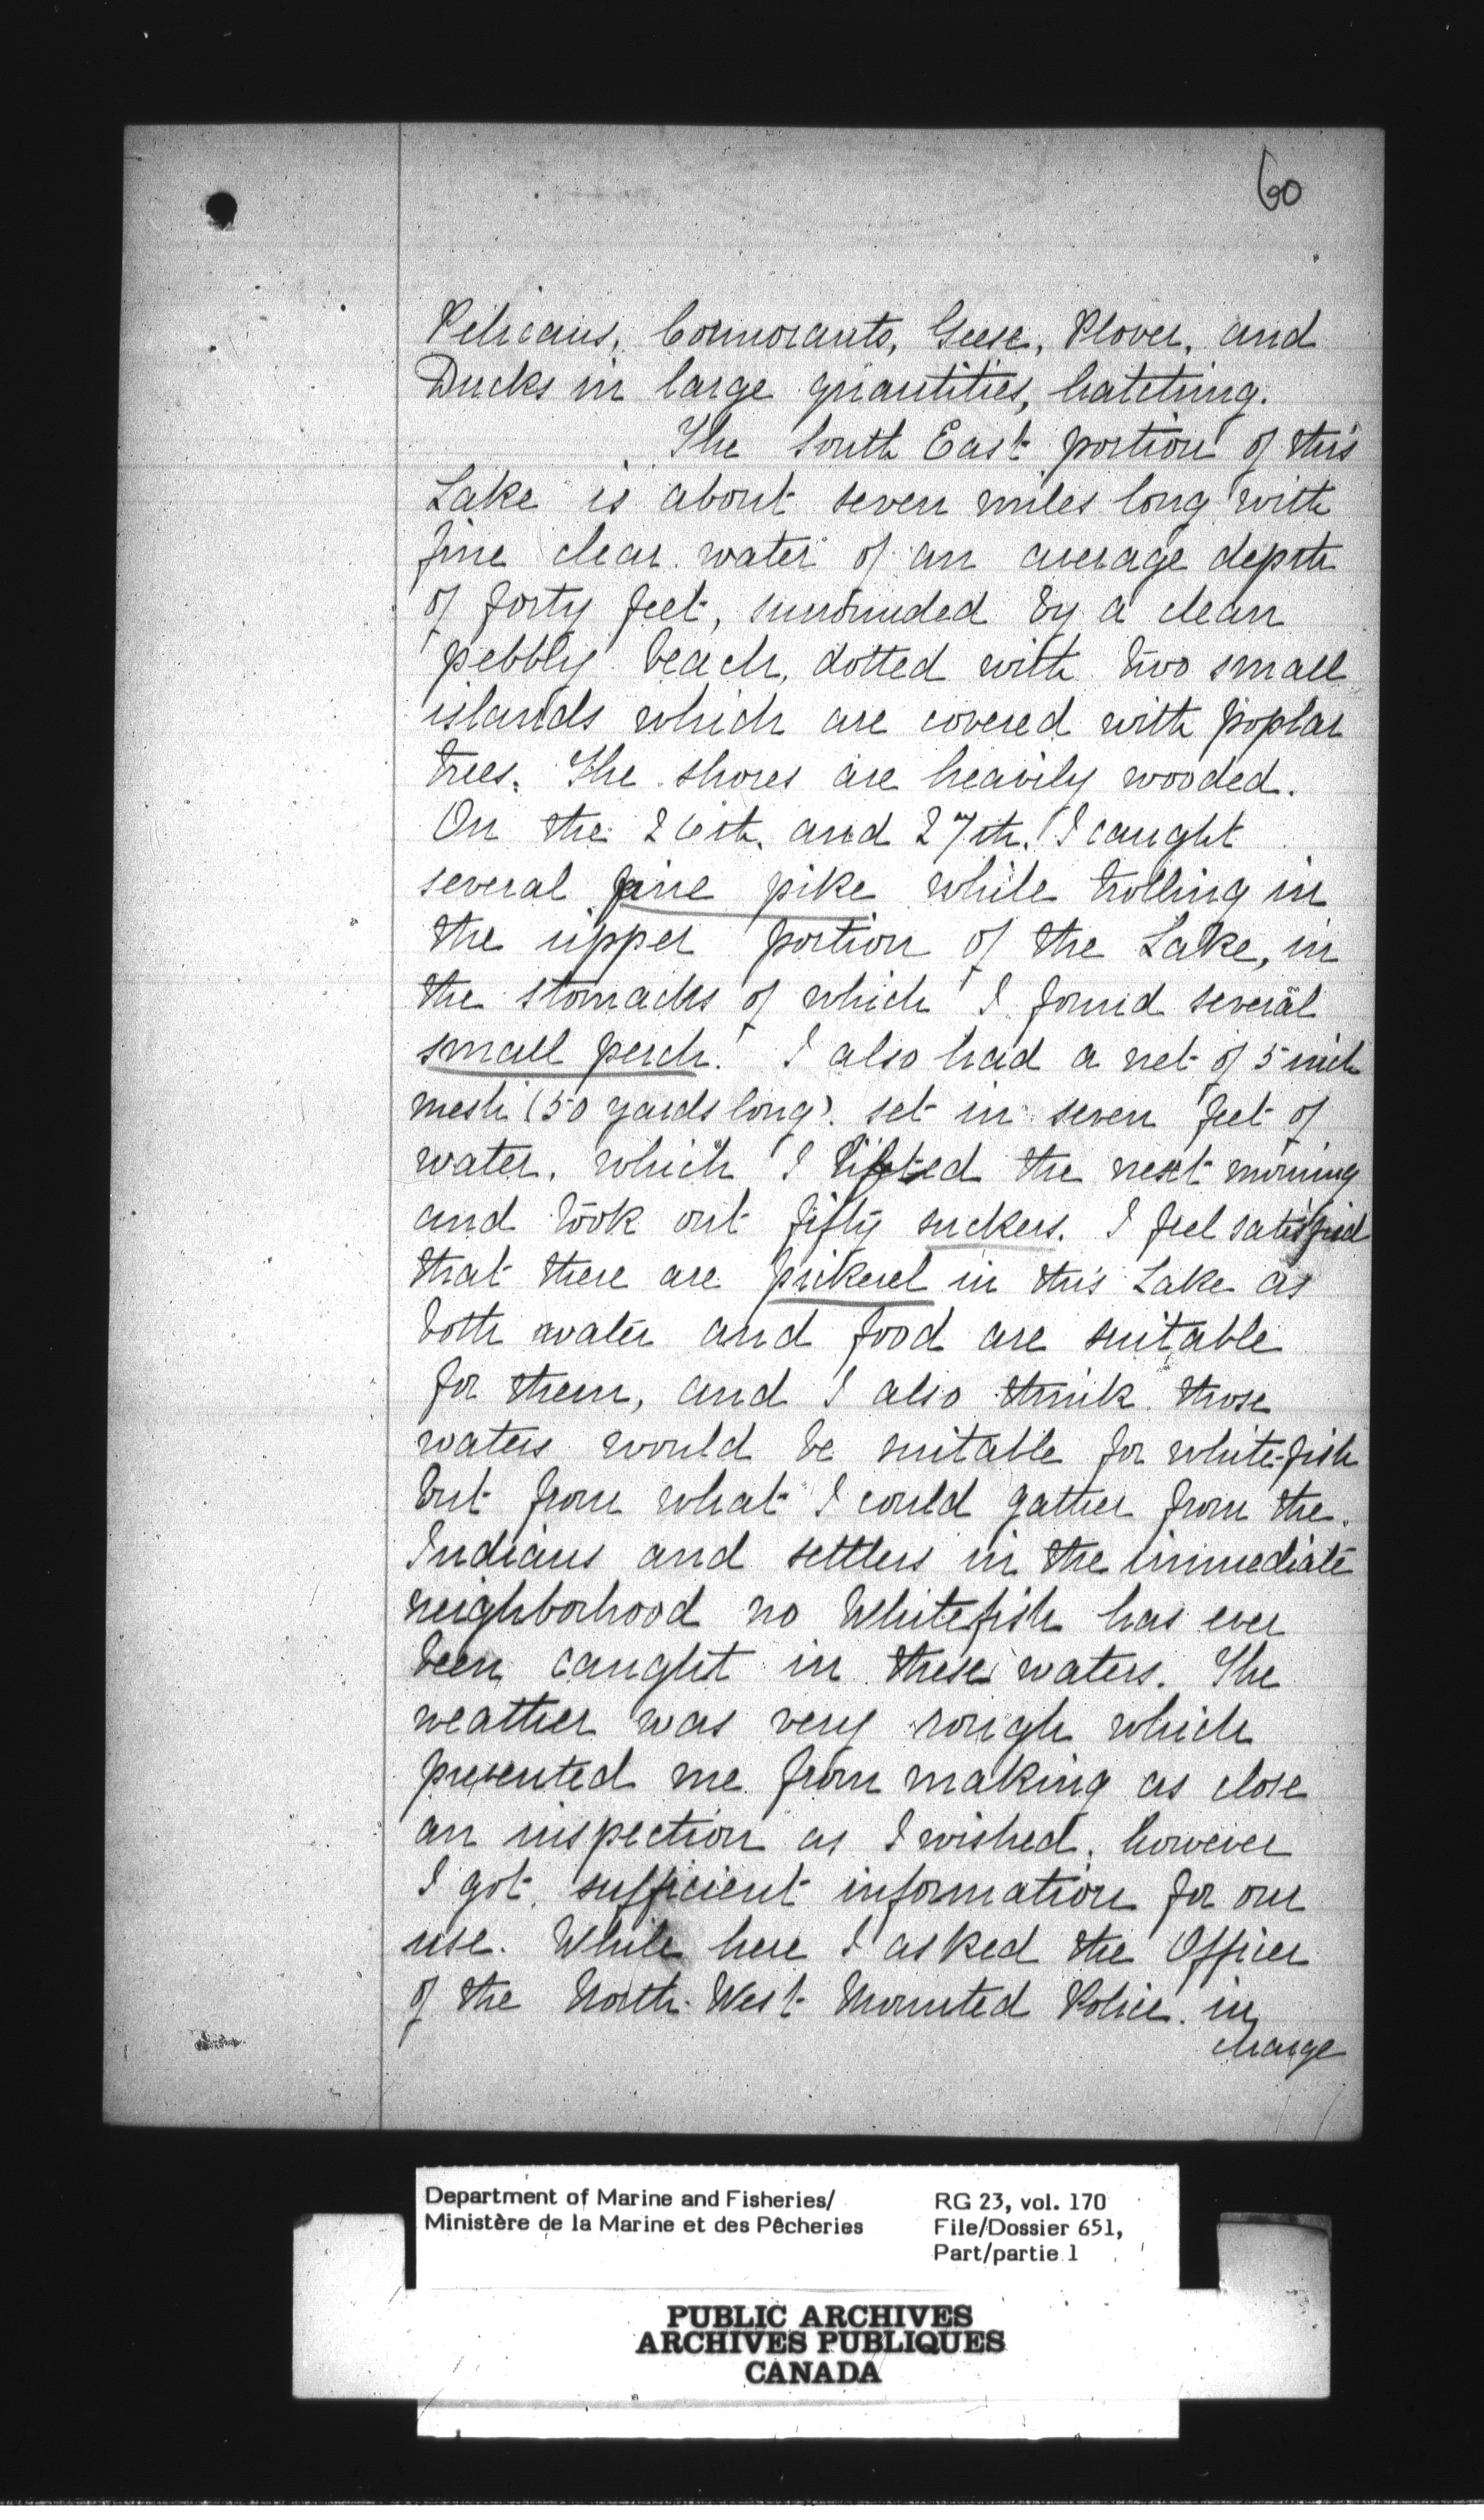 60
Pelicans, Cormorants, Geese, Plover, and
Ducks in large quantities, hatching.
The South East portion of this
Lake is about seven miles long with
fine clear water of an average depth
of forty feet, surrounded by a clean
pebbly beach, dotted with two small
islands which are covered with poplar
trees. The shores are heavily wooded.
On the 26th. and 27th. I caught
several fine pike while trolling in
the upper portion of the Lake, in
the stomachs of which I found several
small perch. I also had a net of 5 inch
mesh (50 yards long). set in seven feet of
water, which I lifted the next morning
and took out fifty suckers. I feel satisfied
that there are pickerel in this Lake as
both water and food are suitable
for them, and I also think those
waters would be suitable for white-fish
but from what I could gather from the
Indians and settlers in the immediate
neighborhood no Whitefish has ever
been caught in these waters. The
weather was very rough which
prevented me from making as close
an inspection as I wished, however
I got sufficient information for our
use. While here I asked the Officer
of the North-West Mounted Police in
charge
Department of Marine and Fisheries/
Ministère de la Marine et des Pêcheries
RG 23, vol. 170
File/Dossier 651,
Part/partie 1
PUBLIC ARCHIVES
ARCHIVES PUBLIQUES
CANADA